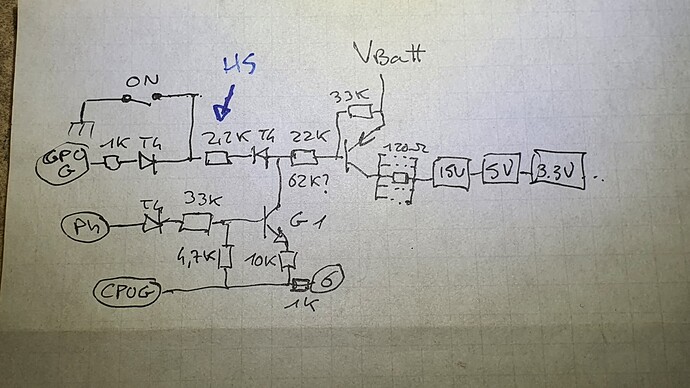 VBatt
HS
ON
33K
1K T4 2,2K T4 22K 120Ω
GPO
G
15V 5V 3.3V ..
62K?
33K
T4
G1
Ph
4,7K 10K
CPOG
6
1K